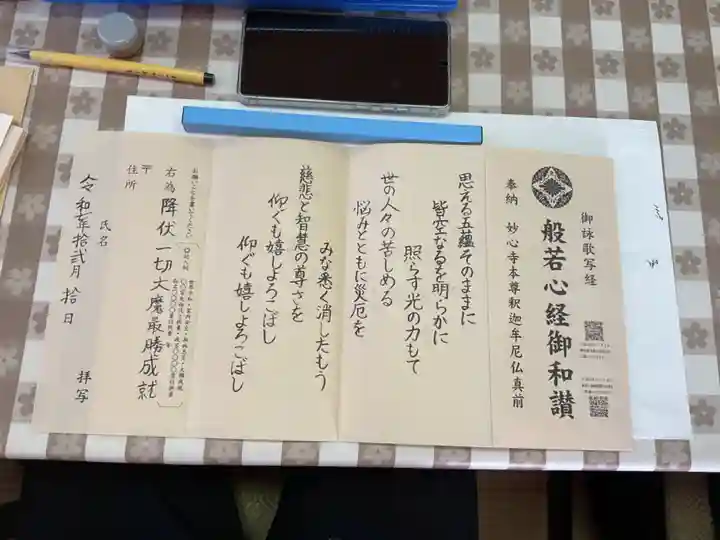 御詠歌写経
般若心経御和讃
奉納 妙心寺本尊釈迦牟尼仏真前
思える五蘊そのままに
皆空なるを明らかに
照らす光の力もて
世の人々の苦しめる
悩みとともに災厄を
みな悉く消したもう
慈悲と智慧の尊さを
仰ぐも嬉しよろこばし
仰ぐも嬉しよろこばし
お願いごとを書いてください
右為 降伏一切大魔最勝成就
〒
住所
氏名 拝写
拾弐月 拾日